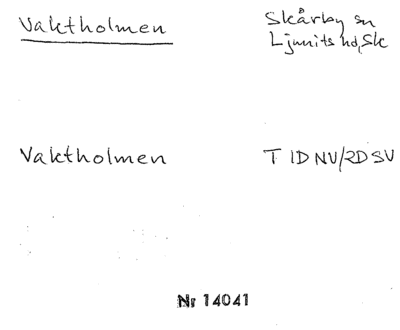 Vaktholmen
Skårby sn
Ljunits hd, Sk
Vaktholmen
T 1D NV/2D SV
Nr 14041